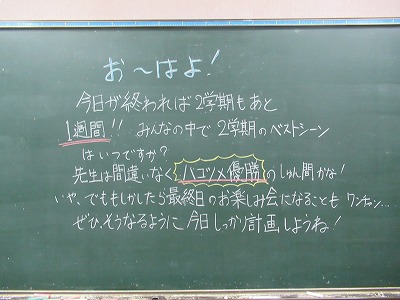 お〜はよ！
今日が終われば2学期もあと
1週間!! みんなの中で2学期のベストシーン
はいつですか？
先生は間違いなくハコツメ優勝のしゅん間かな！
いや、でももしかしたら最終日のお楽しみ会になることもワンチャン…
ぜひそうなるように今日しっかり計画しようね！